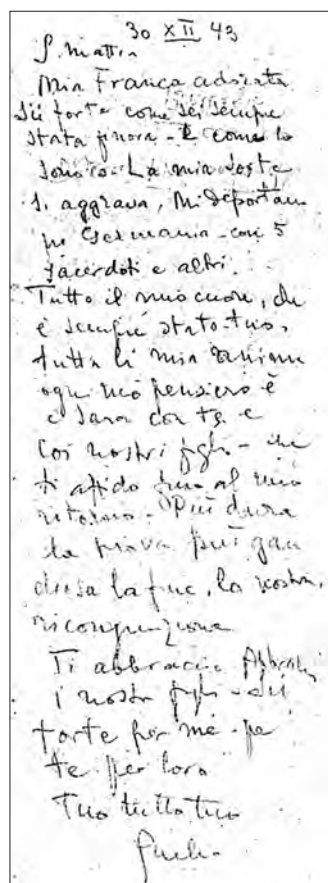 30 XII 43
S. Mattia
Mia Franca adorata
Sii forte come sei sempre
stata finora - E come lo
sono io - La mia sorte
si aggrava, mi deportano
in Germania - con 5
sacerdoti e altri.
Tutto il mio cuore, che
è sempre stato tuo,
tutta la mia anima
ogni mio pensiero è
e sarà con te e
coi nostri figli - che
ti affido fino al mio
ritorno - Più dura
la prova più
la fine, la nostra
ricongiunzione
Ti abbraccio Abbraccia
i nostri figli - Sii
forte per me - per
te per loro
Tuo tutto tuo